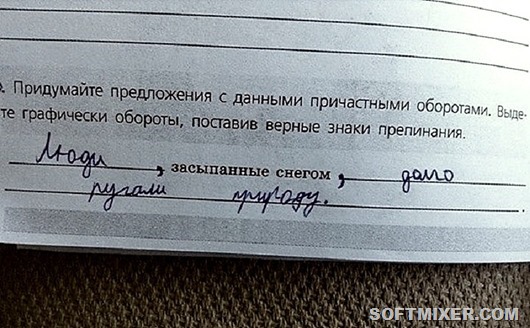 . Придумайте предложения с данными причастными оборотами. Выде-
те графически обороты, поставив верные знаки препинания.
Люди, засыпанные снегом, долго
ругали природу.
SOFTMIXER.COM